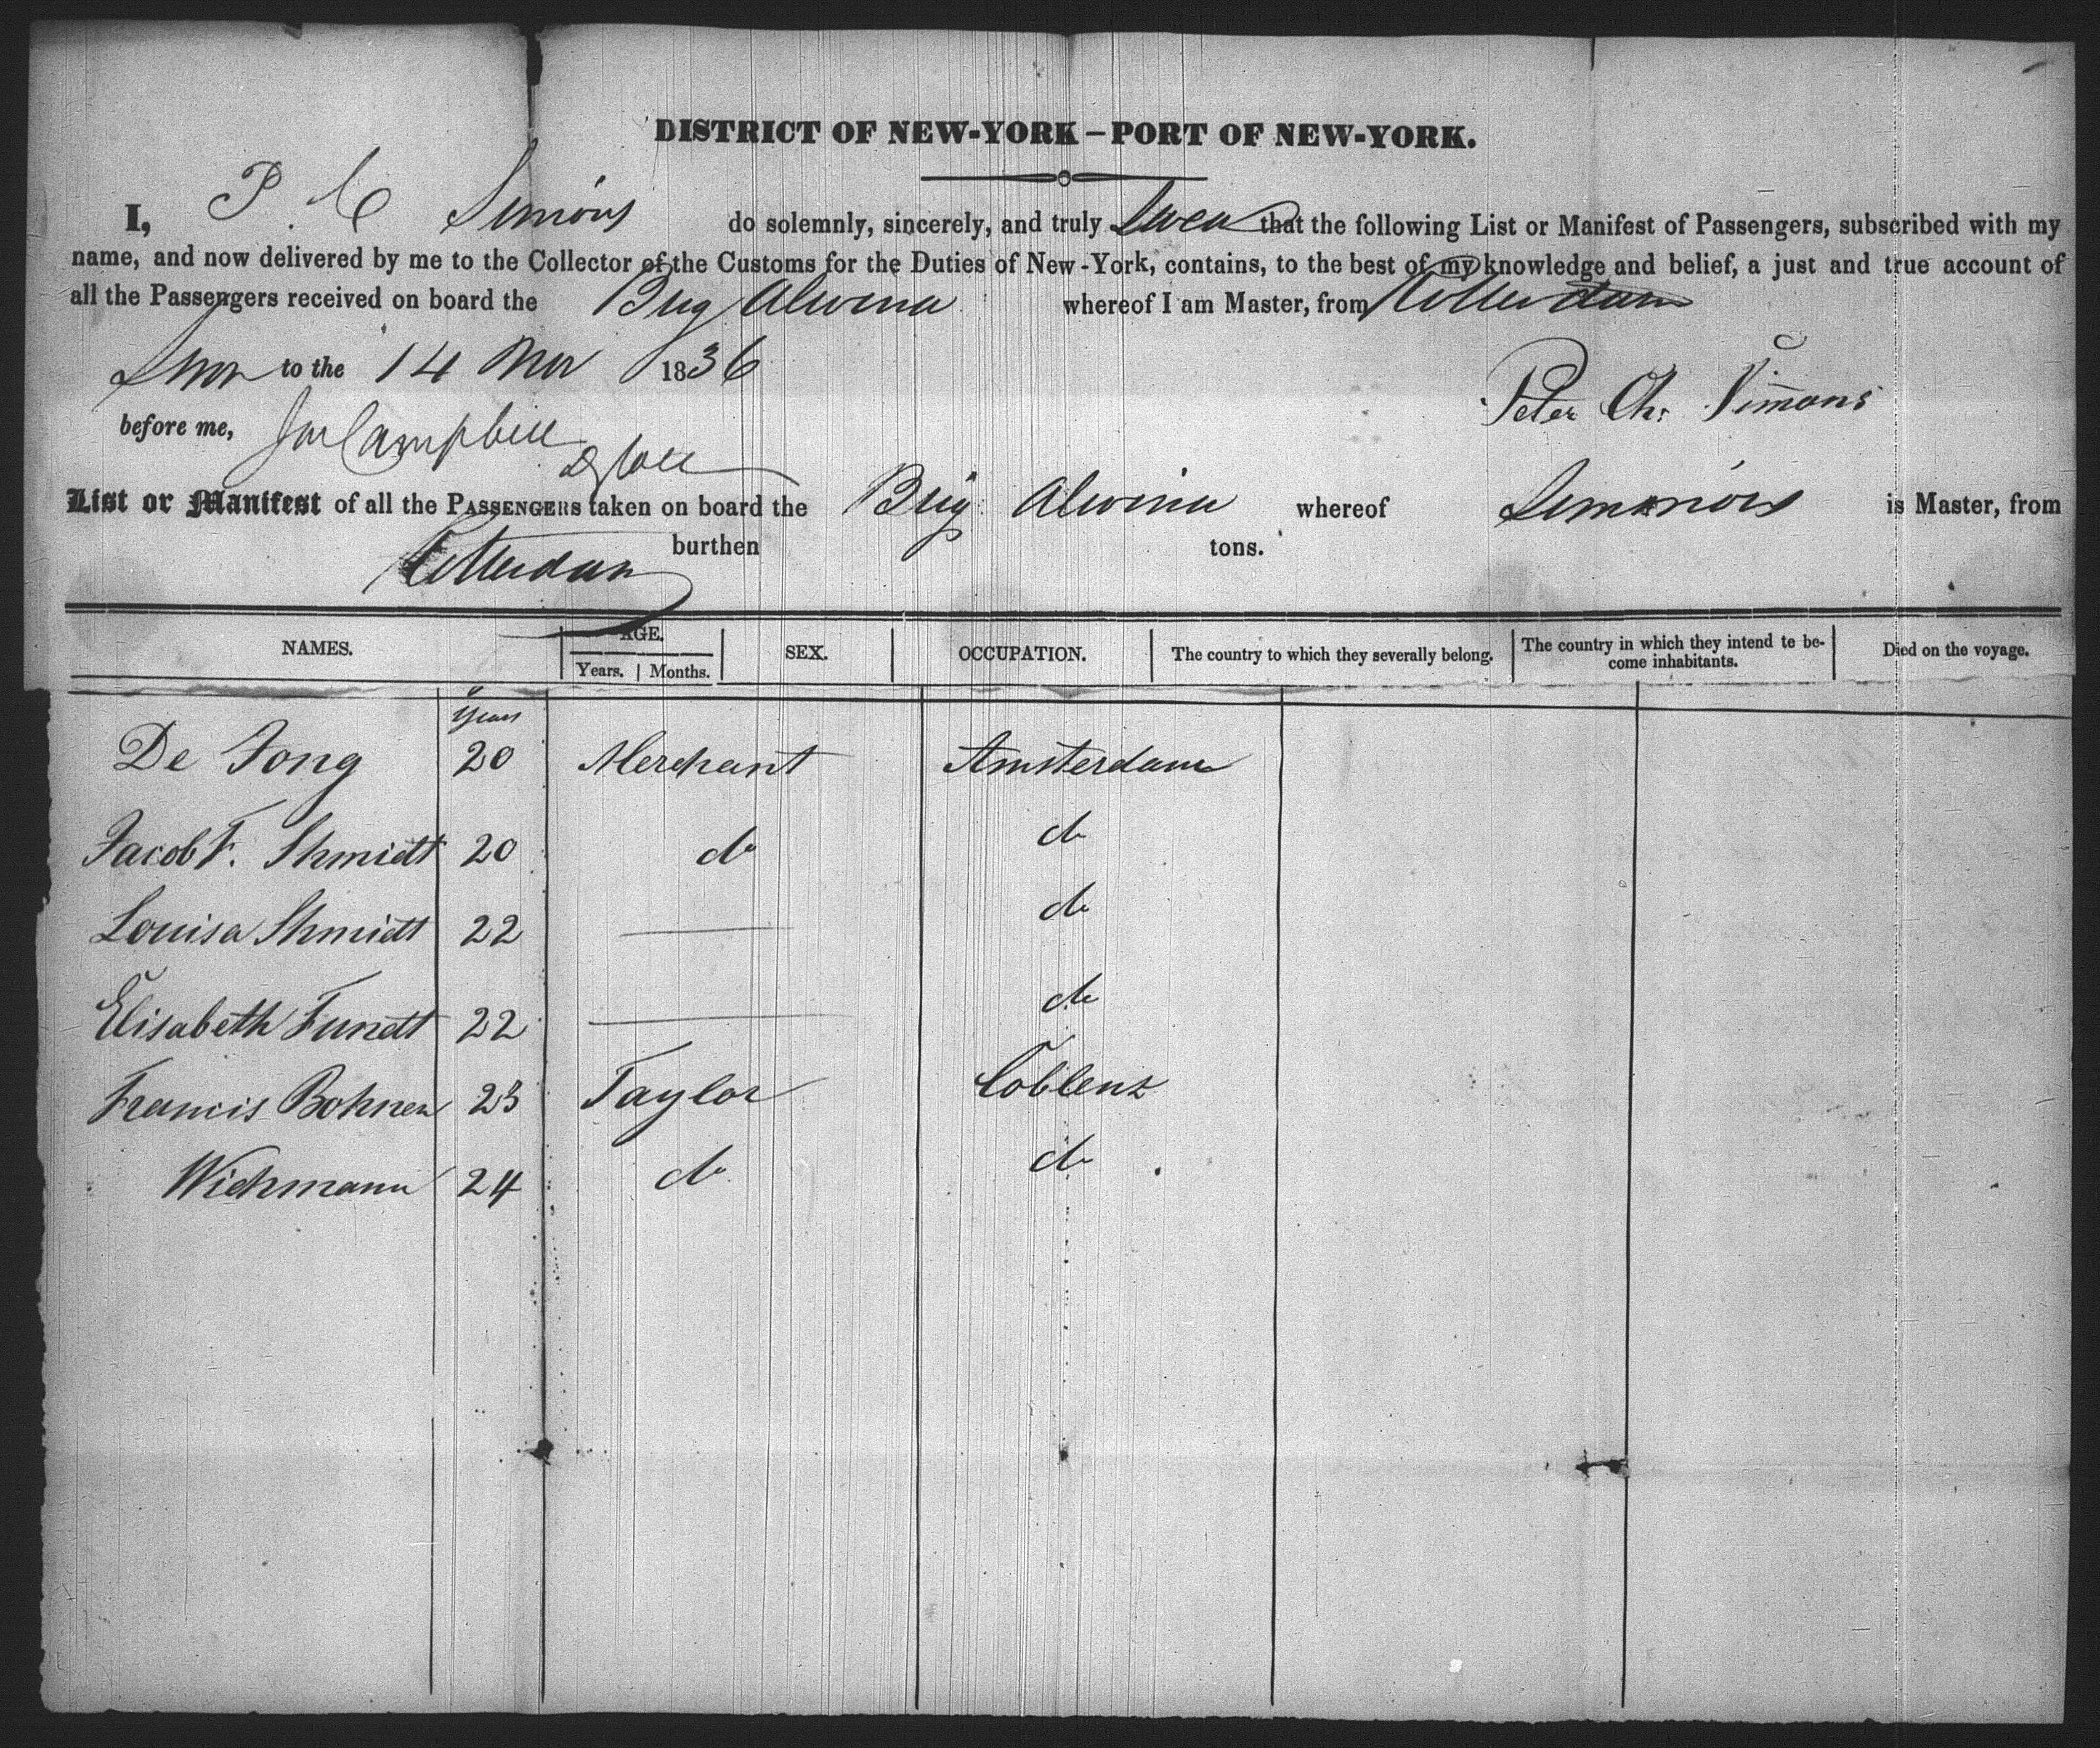 DISTRICT OF NEW-YORK – PORT OF NEW-YORK.
I, P. C Simons do solemnly, sincerely, and truly Swear that the following List or Manifest of Passengers, subscribed with my
name, and now delivered by me to the Collector of the Customs for the Duties of New-York, contains, to the best of my knowledge and belief, a just and true account of
all the Passengers received on board the Brig Alwina whereof I am Master, from Rotterdam
Swor to the 14 Nov 1836
Peter Chr Simons
before me, Campbell
List or Manifest of all the PASSENGERS taken on board the Brig Alwina whereof Simons is Master, from
Rotterdam burthen tons.
NAMES. AGE. Years. Months. SEX. OCCUPATION. The country to which they severally belong. The country in which they intend to be-come inhabitants. Died on the voyage.
Years
De Jong 20 Merchant Amsterdam
Jacob F. Shmidt 20 do do
Louisa Shmidt 22 — do
Elisabeth Fundt 22 — do
Francis Bohnen 23 Taylor Coblenz
Wichmann 24 do do